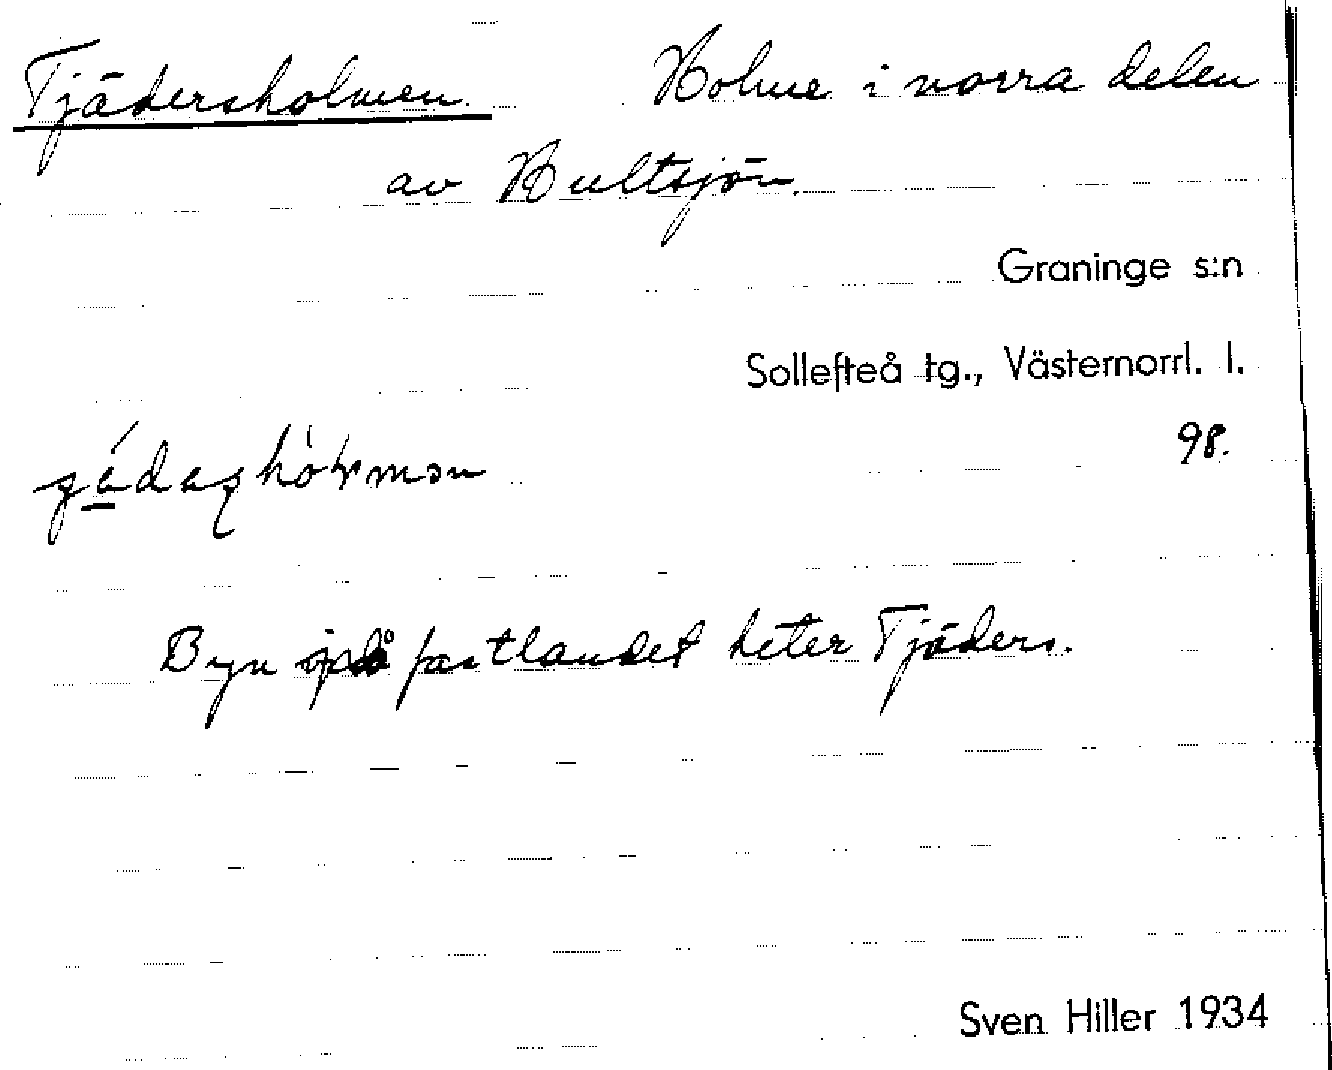 Tjädersholmen. Holme i norra delen
av Hultsjön.
Graninge s:n
Sollefteå tg., Västernorrl. l.
98.
Byn på fastlandet heter Tjäders.
Sven Hiller 1934